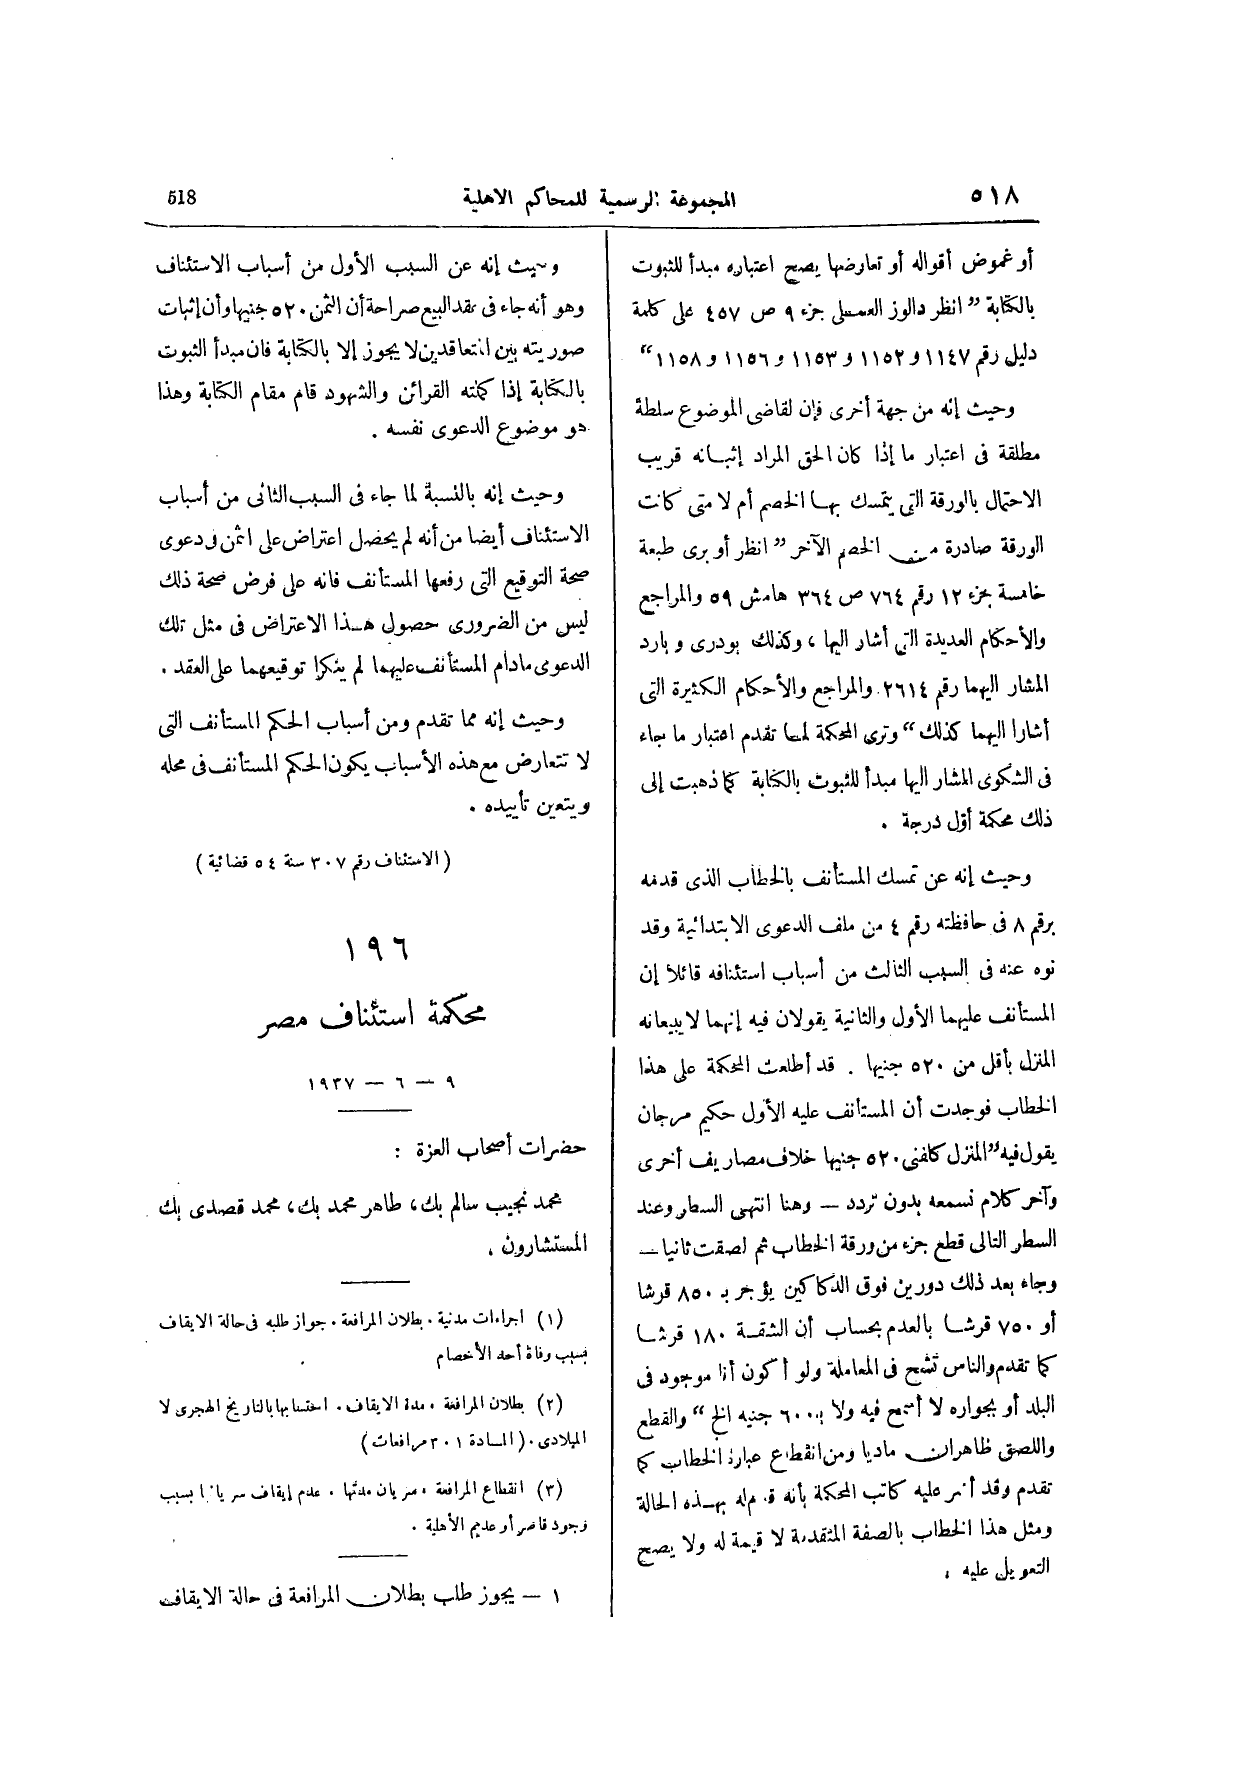 ٥١٨ المجموعة الرسمية للمحاكم الاهلية 518
أو غموض أقواله أو تعارضها يصح اعتباره مبدأ للثبوت
بالكتابة "انظر دالوز العملى جزء ٩ ص ٤٥٧ على كلمة
دليل رقم ١١٤٧ و ١١٥٢ و ١١٥٣ و ١١٥٦ و ١١٥٨"
وحيث إنه من جهة أخرى فإن لقاضى الموضوع سلطة
مطلقة فى اعتبار ما إذا كان الحق المراد إثباته قريب
الاحتمال بالورقة التى يتمسك بها الخصم أم لا متى كانت
الورقة صادرة من الخصم الآخر "انظر أوبرى طبعة
خامسة جزء ١٢ رقم ٧٦٤ ص ٣٦٤ هامش ٥٩ والمراجع
والأحكام العديدة التى أشار اليها، وكذلك بودرى و بارد
المشار اليهما رقم ٢٦١٤ والمراجع والأحكام الكثيرة التى
أشارا اليهما كذلك" وترى المحكمة لما تقدم اعتبار ما جاء
فى الشكوى المشار اليها مبدأ للثبوت بالكتابة كما ذهبت إلى
ذلك محكمة أول درجة .
وحيث إنه عن تمسك المستأنف بالخطاب الذى قدمه
برقم ٨ فى حافظته رقم ٤ من ملف الدعوى الابتدائية وقد
نوه عنه فى السبب الثالث من أسباب استئنافه قائلا إن
المستأنف عليهما الأول والثانية يقولان فيه إنهما لا يبيعانه
المنزل بأقل من ٥٢٠ جنيها . قد أطلعت المحكمة على هذا
الخطاب فوجدت أن المستأنف عليه الأول حكيم مرجان
يقول فيه "المنزل كلفنى ٥٢٠ جنيها خلاف مصاريف أخرى
وآخر كلام نسمعه بدون تردد — وهنا انتهى السطر وعند
السطر التالى قطع جزء من ورقة الخطاب ثم لصقت ثانيا —
وجاء بعد ذلك دورين فوق الدكاكين يؤجر بـ ٨٥٠ قرشا
أو ٧٥٠ قرشا بالعدم بحساب أن الشقة ١٨٠ قرشا
كما تقدم والناس تشح فى المعاملة ولو أكون أنا موجود فى
البلد أو بجواره لا أسمح فيه ولا بـ ٦٠٠ جنيه الخ" والقطع
واللصق ظاهران ماديا ومن انقطاع عبارة الخطاب كما
تقدم وقد أشر عليه كاتب المحكمة بأنه قدم له بهذه الحالة
ومثل هذا الخطاب بالصفة المتقدمة لا قيمة له ولا يصح
التعويل عليه .
وحيث إنه عن السبب الأول من أسباب الاستئناف
وهو أنه جاء فى عقد البيع صراحة أن الثمن ٥٢٠ جنيها وأن إثبات
صوريته بين المتعاقدين لا يجوز إلا بالكتابة فان مبدأ الثبوت
بالكتابة إذا كملته القرائن والشهود قام مقام الكتابة وهذا
هو موضوع الدعوى نفسه .
وحيث إنه بالنسبة لما جاء فى السبب الثانى من أسباب
الاستئناف أيضا من أنه لم يحصل اعتراض على الثمن فى دعوى
صحة التوقيع التى رفعها المستأنف فانه على فرض صحة ذلك
ليس من الضرورى حصول هذا الاعتراض فى مثل تلك
الدعوى مادام المستأنف عليهما لم ينكرا توقيعهما على العقد .
وحيث إنه مما تقدم ومن أسباب الحكم المستأنف التى
لا تتعارض مع هذه الأسباب يكون الحكم المستأنف فى محله
ويتعين تأييده .
(الاستئناف رقم ٣٠٧ سنة ٥٤ قضائية)
١٩٦
محكمة استئناف مصر
٩ — ٦ — ١٩٣٧
حضرات أصحاب العزة :
محمد نجيب سالم بك، طاهر محمد بك، محمد قصدى بك
المستشارون .
(١) اجراءات مدنية . بطلان المرافعة . جواز طلبه فى حالة الايقاف
بسبب وفاة أحد الأخصام
(٢) بطلان المرافعة . مدة الايقاف . احتسابها بالتاريخ الهجرى لا
الميلادى . (المادة ٣٠١ مرافعات)
(٣) انقطاع المرافعة . سريان مدتها . عدم إيقاف سريانها بسبب
وجود قاصر أو عديم الأهلية .
١ — يجوز طلب بطلان المرافعة فى حالة الايقاف